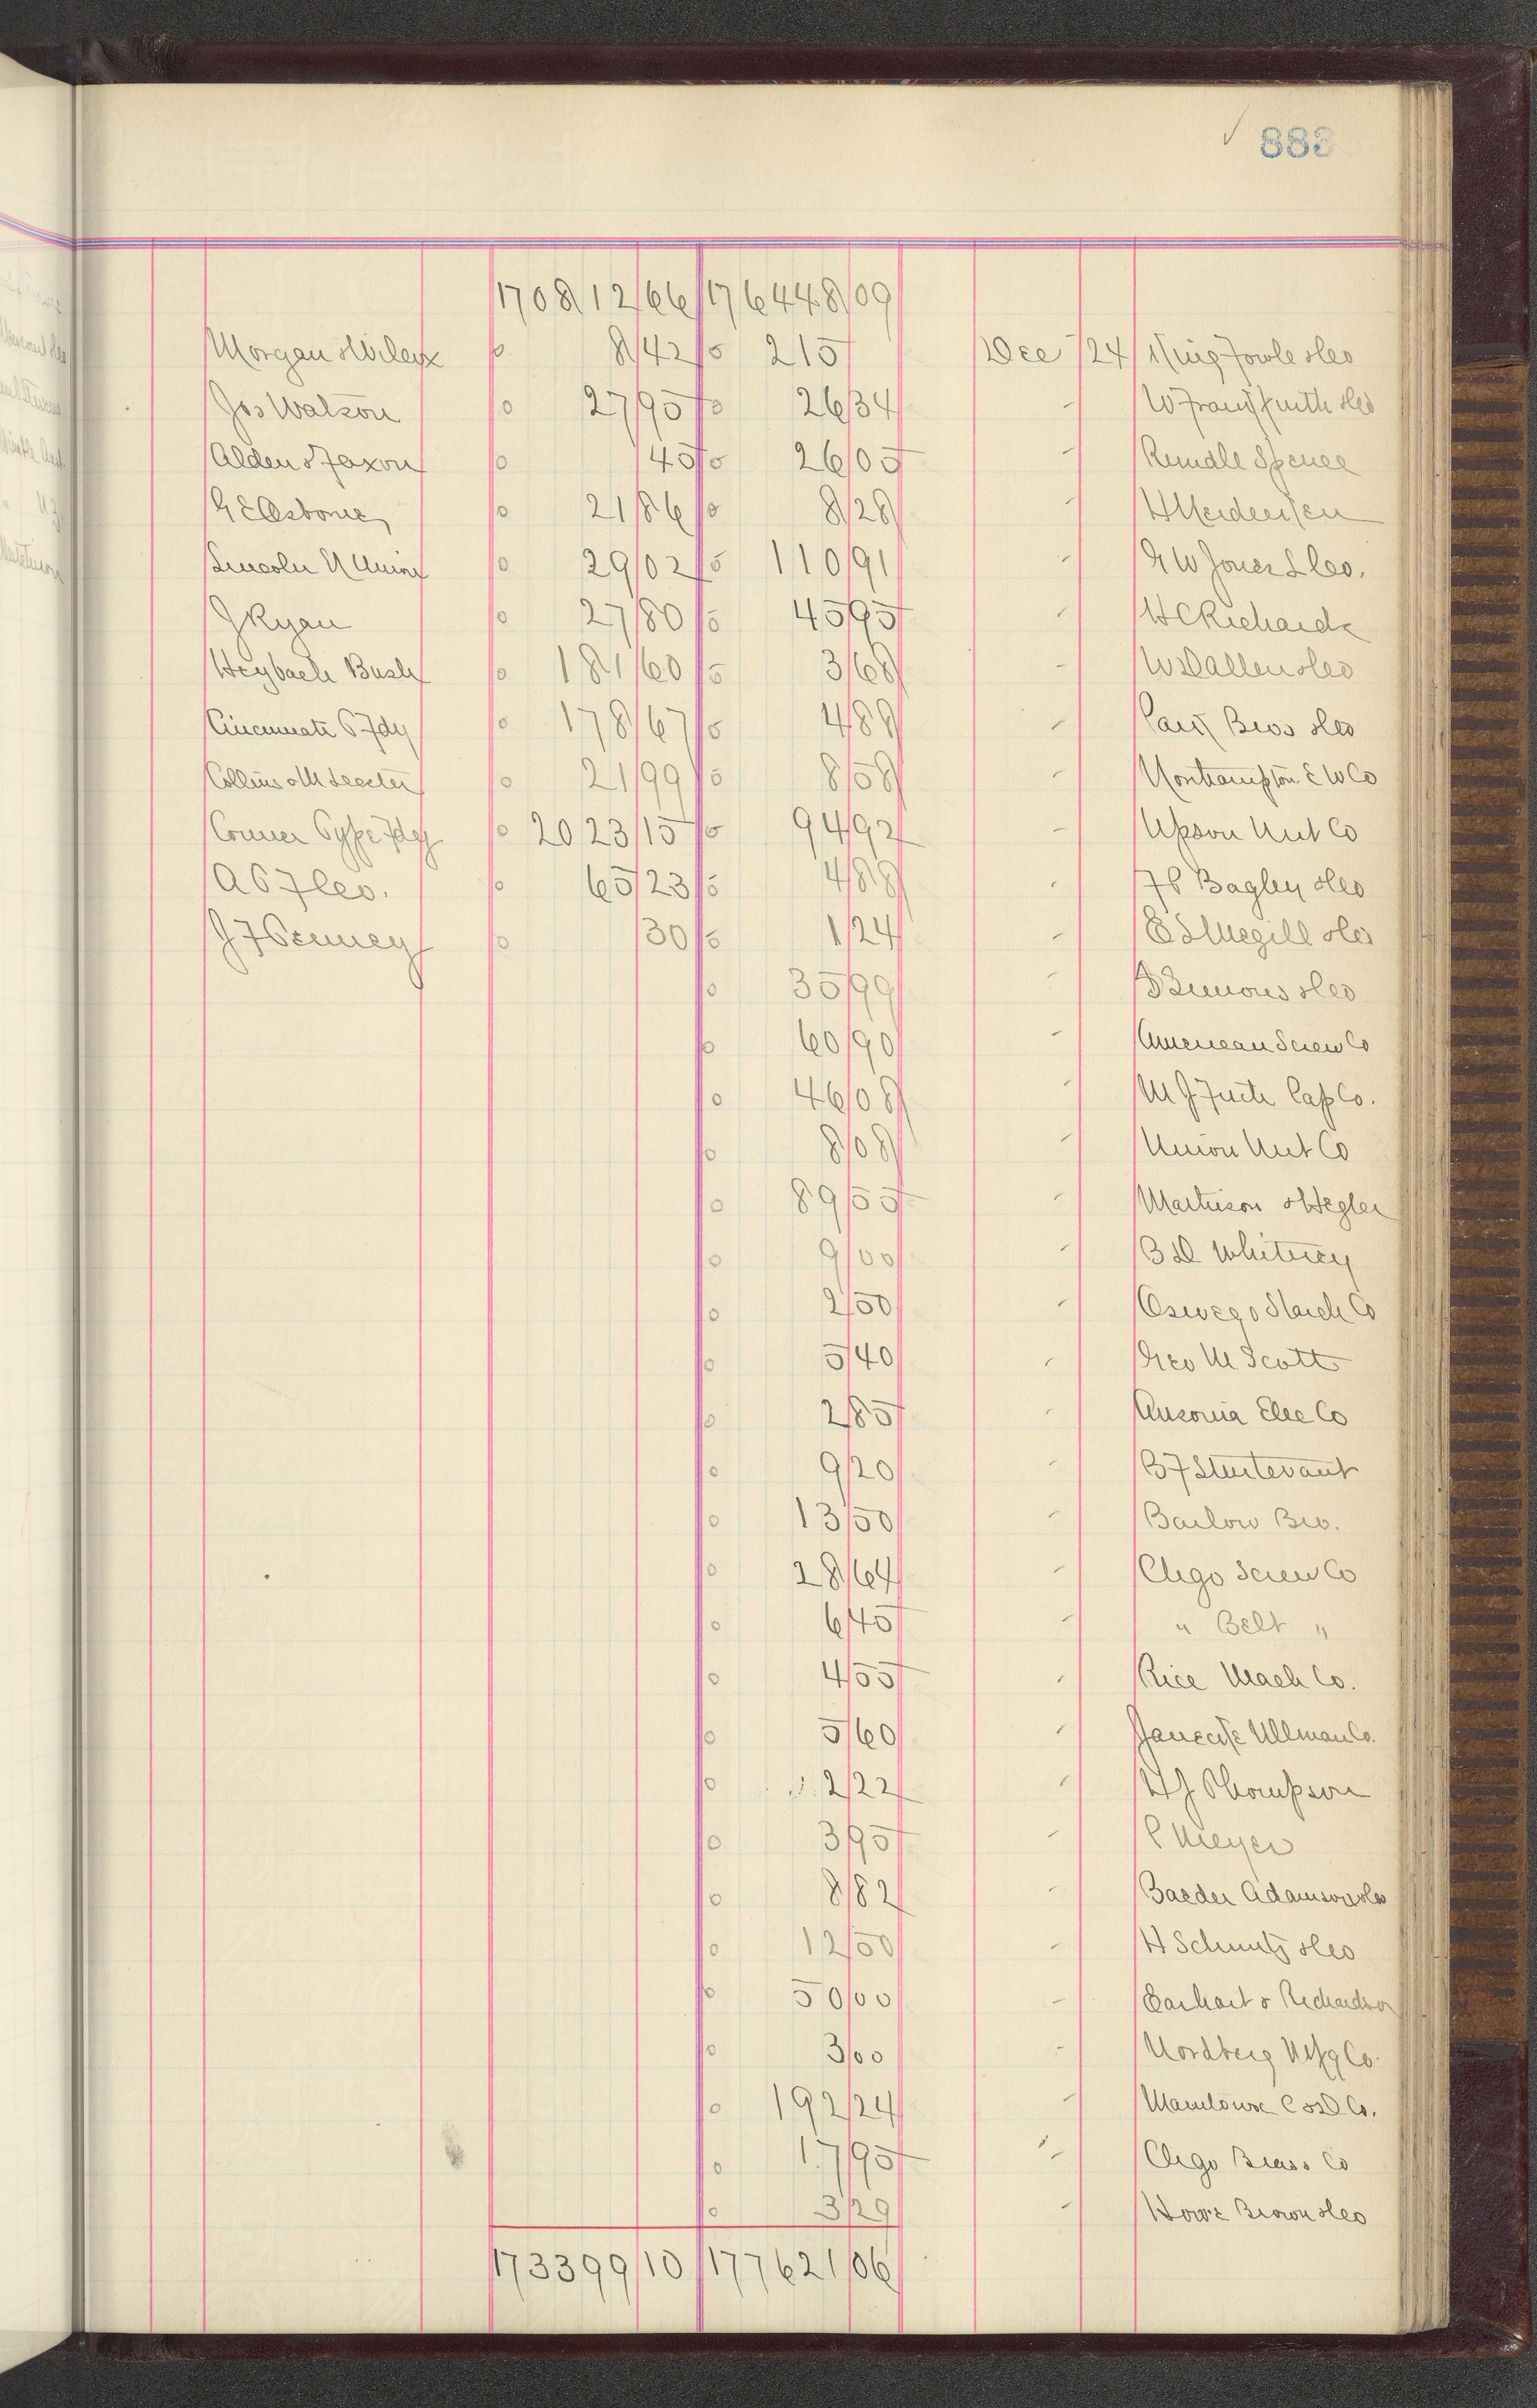 883
170812 66 176448 09
Morgan & Wilcox 8 42 2 15 Dec 24 King Fowle & Co
Jos Watson 27 95 26 34 W Frankfurth & Co
Alden & Faxon 45 26 05 Rundle Spence
G E Osborne 21 86 8 28 H
Lincoln N Union 29 02 110 91 G W Jones L Co.
J Ryan 27 80 45 95 H C Richards
Weybach Bush 181 60 3 68 W D Allen & Co
Cincinnati T Fdy 178 67 4 89 Bros & Co
Collins & M 21 99 8 58 Northampton E W Co
Conner Type Fdy 2023 15 94 92 Upson Nut Co
A T F Co. 65 23 4 88 F P Bagley & Co
J F 30 1 24 E S Magill & Co
35 99 & Co
60 90 American Screw Co
46 08 M J Cap Co.
8 08 Union Nut Co
89 55 Mattison & Hegler
9 00 B D Whitney
2 50 Oswego Starch Co
5 40 Geo M Scott
2 85 Ansonia Elec Co
9 20 B F Sturtevant
13 50 Barlow Bro.
28 64 Chgo Screw Co
6 45 " Belt "
4 55 Rice Mach Co.
5 60 Ullman Co.
2 22 H J Thompson
3 95 Meyer
8 82 Baeder Adamson & Co
12 50 H Schmitz & Co
50 00 Earhart & Richardson
3 00 Nordberg Mfg Co.
192 24 Manitowoc Co.
17 95 Chgo Brass Co
3 29 Howe Brown & Co
173399 10 177621 06